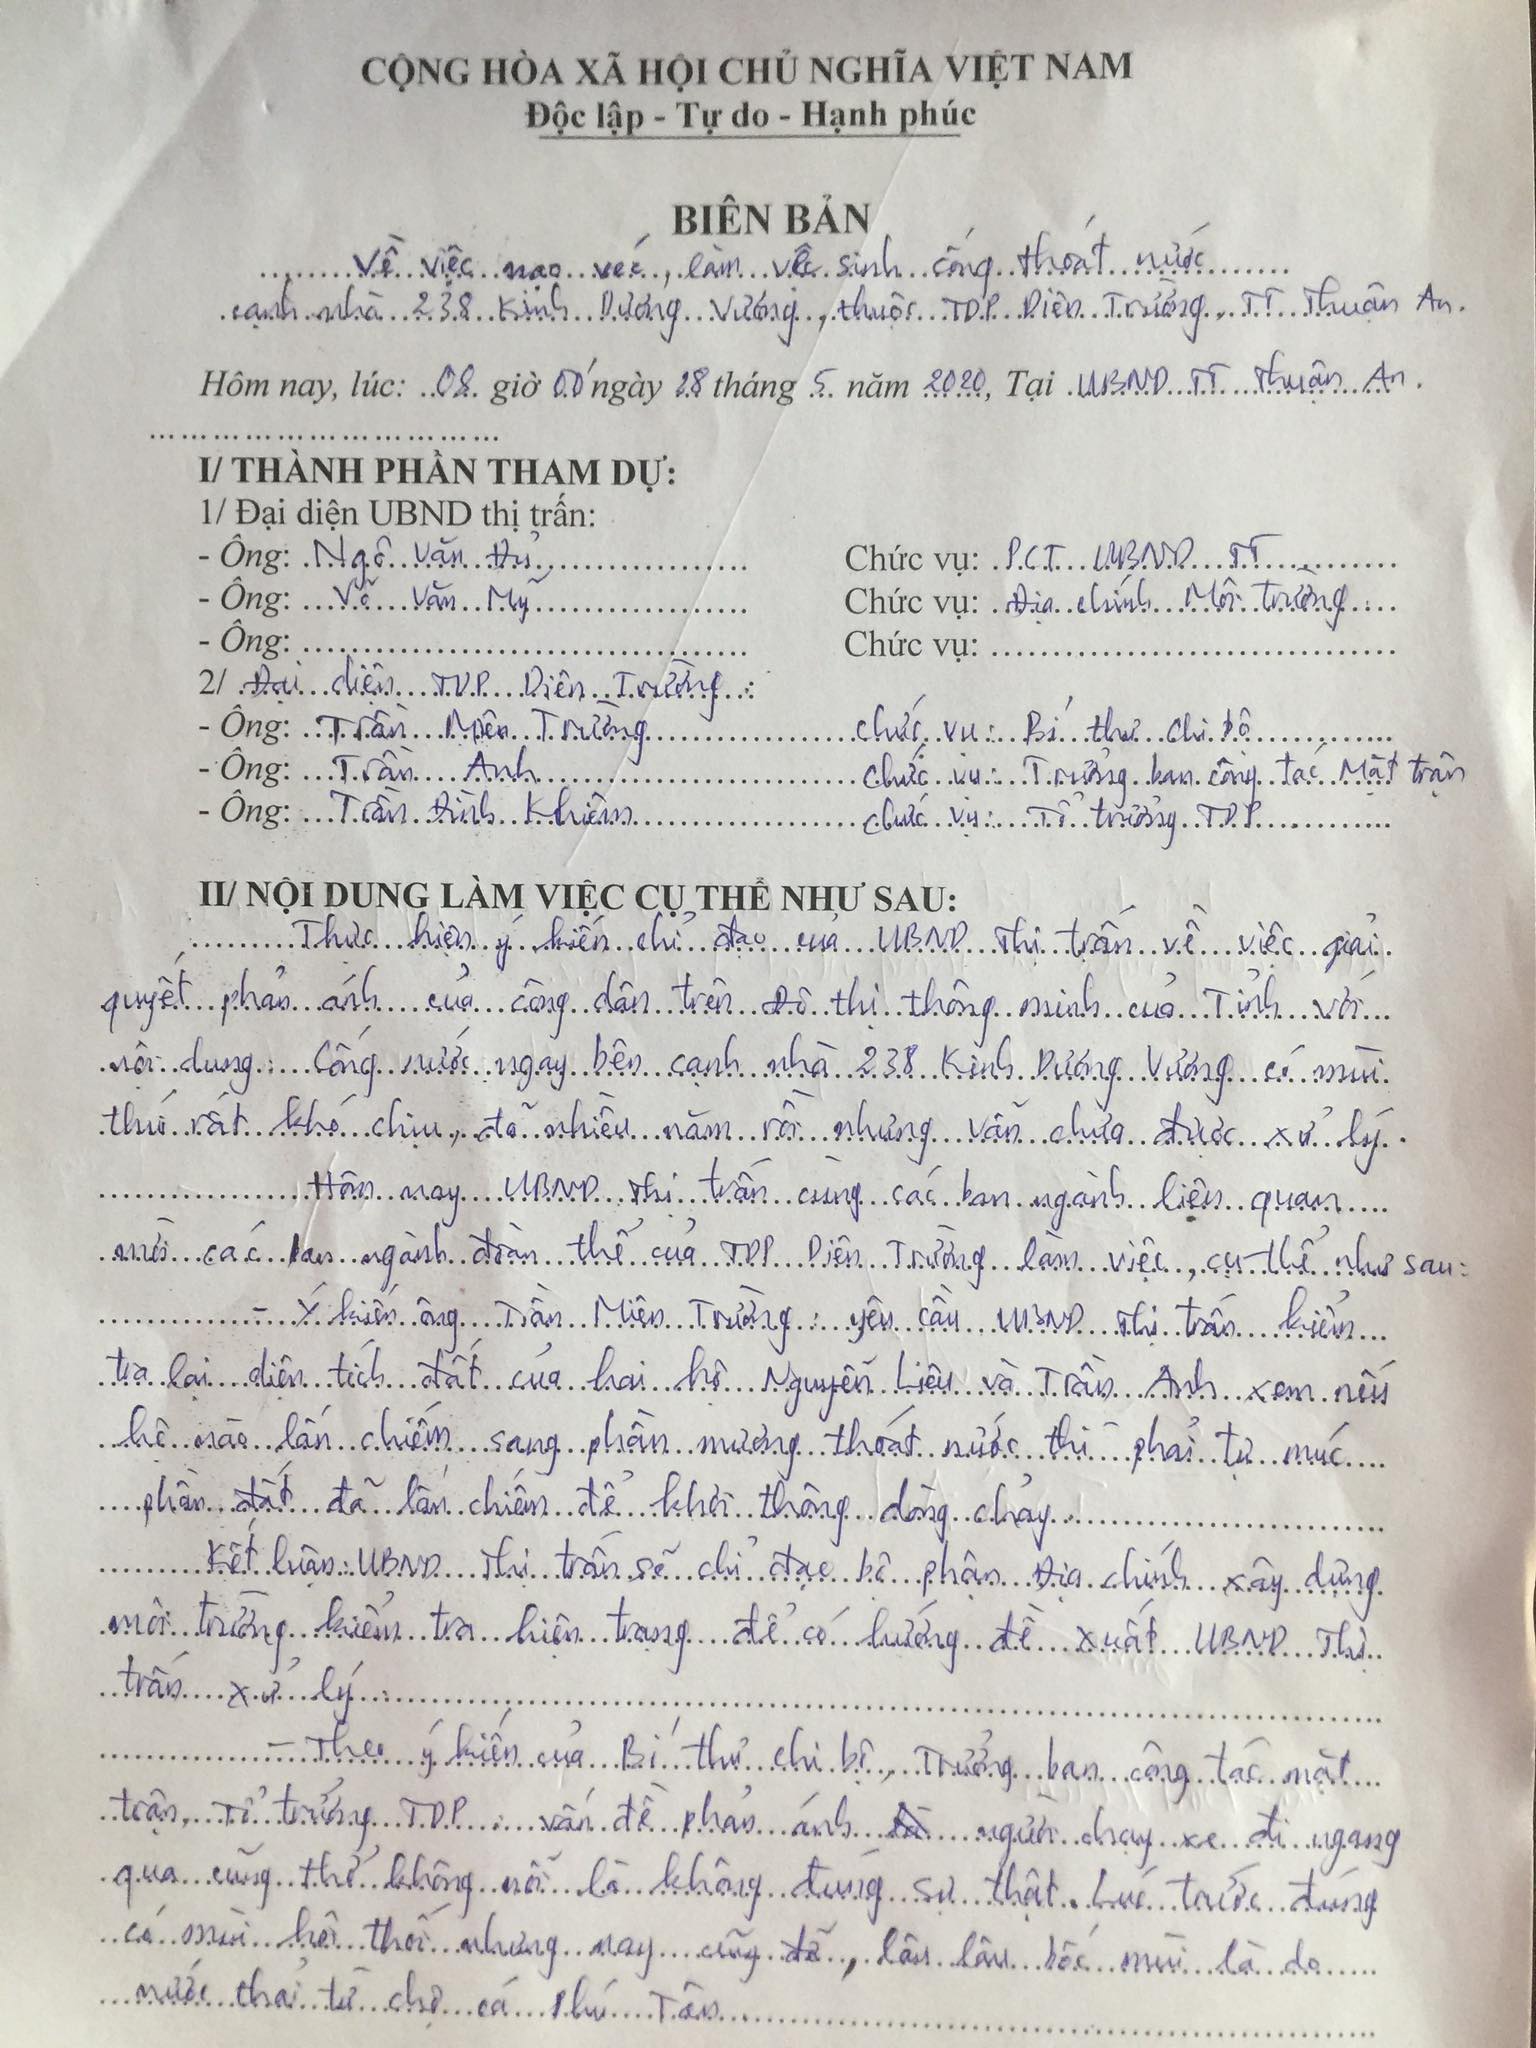 CỘNG HÒA XÃ HỘI CHỦ NGHĨA VIỆT NAM
Độc lập - Tự do - Hạnh phúc
BIÊN BẢN
Về việc nạo vét, làm vệ sinh cống thoát nước
cạnh nhà 238 Kinh Dương Vương, thuộc TDP Diên Trường, TT Thuận An.
Hôm nay, lúc: 08 giờ 00 ngày 28 tháng 5 năm 2020, Tại UBND TT Thuận An.
I/ THÀNH PHẦN THAM DỰ:
1/ Đại diện UBND thị trấn:
- Ông: Ngô Văn Đủ Chức vụ: P.CT UBND TT
- Ông: Võ Văn Mỹ Chức vụ: Địa chính Môi trường
- Ông: Chức vụ:
2/ Đại diện TDP Diên Trường:
- Ông: Trần Miên Trường chức vụ: Bí thư chi bộ
- Ông: Trần Anh chức vụ: Trưởng ban công tác Mặt trận
- Ông: Trần Đình Khiêm chức vụ: Tổ trưởng TDP
II/ NỘI DUNG LÀM VIỆC CỤ THỂ NHƯ SAU:
Thực hiện ý kiến chỉ đạo của UBND Thị trấn về việc giải
quyết phản ánh của công dân trên Đô thị thông minh của Tỉnh với
nội dung: Cống nước ngay bên cạnh nhà 238 Kinh Dương Vương có mùi
thúi rất khó chịu, đã nhiều năm rồi nhưng vẫn chưa được xử lý.
Hôm nay UBND Thị trấn cùng các ban ngành liên quan
mời các ban ngành đoàn thể của TDP Diên Trường làm việc, cụ thể như sau:
- Ý kiến ông Trần Miên Trường: yêu cầu UBND Thị trấn kiểm
tra lại diện tích đất của hai hộ Nguyễn Liêu và Trần Anh xem nếu
hộ nào lấn chiếm sang phần mương thoát nước thì phải tự múc
phần đất đã lấn chiếm để khơi thông dòng chảy.
Kết luận: UBND Thị trấn sẽ chỉ đạo bộ phận Địa chính xây dựng
môi trường kiểm tra hiện trạng để có hướng đề xuất UBND Thị
trấn xử lý.
- Theo ý kiến của Bí thư chi bộ, Trưởng ban công tác mặt
trận, Tổ trưởng TDP: vấn đề phản ánh người chạy xe đi ngang
qua cũng thở không nổi là không đúng sự thật. Lúc trước đúng
có mùi hôi thối nhưng nay cũng đỡ, lâu lâu bốc mùi là do
nước thải từ chợ cá Phú Tân